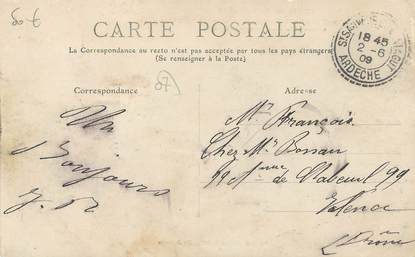 50 €
CARTE POSTALE
La Correspondance au recto n'est pas acceptée par tous les pays étrangers
(Se renseigner à la Poste)
18 45
2 - 6
09
ARDÈCHE
07
Correspondance
Adresse
Un
Bonjours
J. R
Mr François
Chez Mr
99 de 99
Valence
Drôme